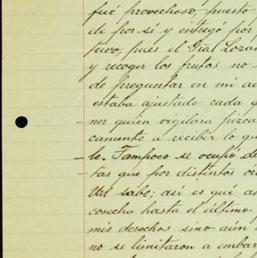 fué provechoso, puesto
di por sí y entregó por
juco, pues el Gral Loza
y recoger los frutos no
de preguntar en mi a
estaba ajustado cada q
ner quien vigilara
camente a recibir lo qu
le. Tampoco se ocupó de
tas que por distintos
Ud sabe; así es qué a
cosecha hasta el último
mis derechos sino aún
no se limitaron a embar